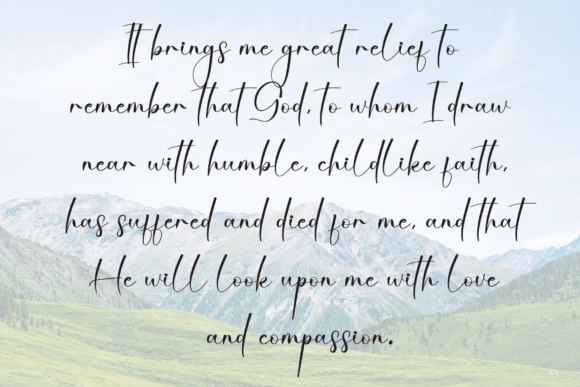 It brings me great relief to
remember that God, to whom I draw
near with humble, childlike faith,
has suffered and died for me, and that
He will look upon me with love
and compassion.